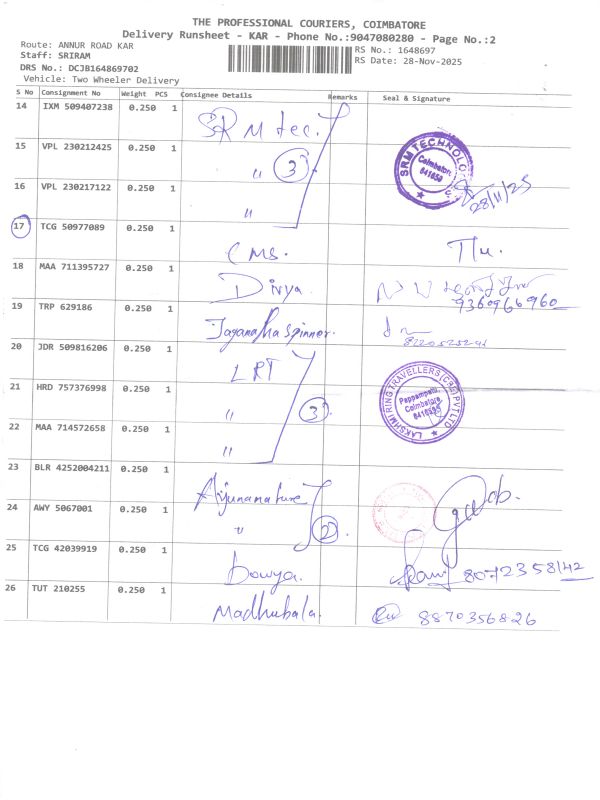 THE PROFESSIONAL COURIERS, COIMBATORE
Delivery Runsheet - KAR - Phone No.:9047080280 - Page No.:2
Route: ANNUR ROAD KAR
Staff: SRIRAM
DRS No.: DCJB164869702
Vehicle: Two Wheeler Delivery
RS No.: 1648697
RS Date: 28-Nov-2025
S No Consignment No Weight PCS Consignee Details Remarks Seal & Signature
14 IXM 509407238 0.250 1 SRM tec.
15 VPL 230212425 0.250 1 " 3 SRM TECHNOLO Coimbatore 641659
16 VPL 230217122 0.250 1 " 28/11/25
17 TCG 50977089 0.250 1 CMS.
18 MAA 711395727 0.250 1 Divya 9360966960
19 TRP 629186 0.250 1 Jaganatha spinner.
20 JDR 509816206 0.250 1 LRT
21 HRD 757376998 0.250 1 " 3 LAKSHMI RING TRAVELLERS (CBE) PVT LTD Pappampatti, Coimbatore
22 MAA 714572658 0.250 1 "
23 BLR 4252004211 0.250 1 Arjunanature
24 AWY 5067001 0.250 1 " 2
25 TCG 42039919 0.250 1 Dowya. 8072358142
26 TUT 210255 0.250 1 Madhubala. 8870356826